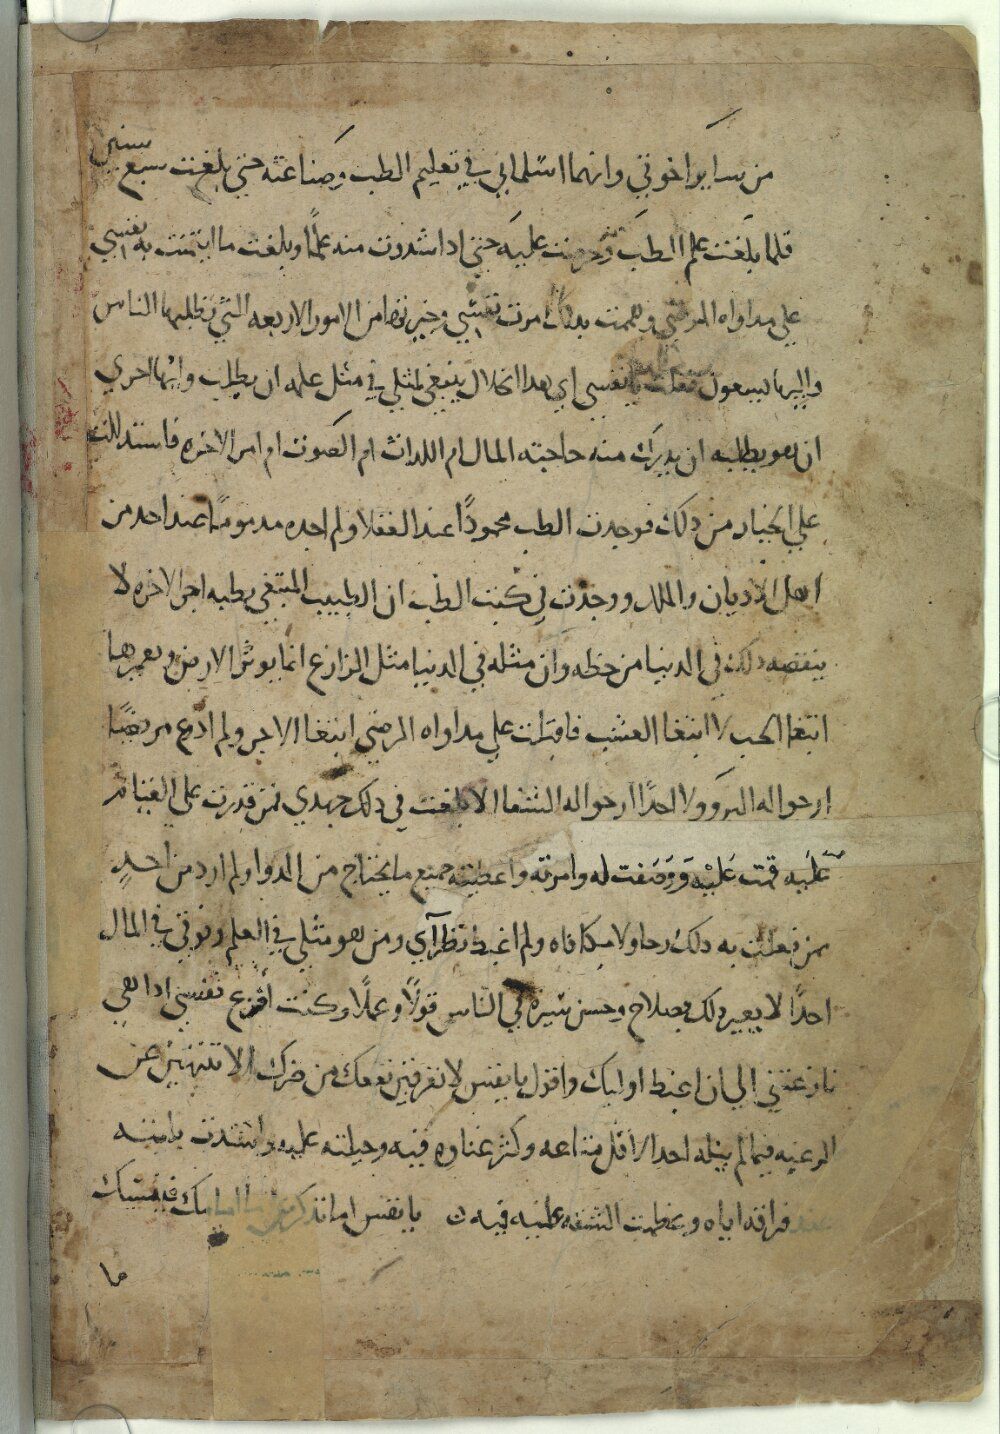 من ساير اخوتي وانهما اسلماني في تعليم الطب وصناعته حتي بلغت سبع سنين
فلما بلغت علم الطب وحرصت عليه حتي اذا شدوت منه علمًا وبلغت ما ايتمنت به نفسي
علي مداواه المرضي وهممت بذلك امرت نفسي وخيرتها من الامور الاربعه التي يطلبها الناس
واليها يسعون فقلت يا نفسي اي هذا الخلال ينبغي لمثلي في مثل علمه ان يطلب وايها احري
ان هو يطلبه ان يدرك منه حاجته المال ام اللذات ام الصوت ام امر الاخره فاستدللت
علي الخيار من ذلك فوجدت الطب محمودًا عند العقلا ولم اجده مذمومًا عند احد من
اهل الاديان والملل ووجدت في كتب الطب ان الطبيب المبتغي بطبه اجر الاخره لا
ينقصه ذلك في الدنيا من حظه وان مثله في الدنيا مثل الزارع انما يوثر الارض ويعمرها
ابتغا الحب لا ابتغا العشب فاقبلت علي مداواه المرضي ابتغا الاجر ولم ادع مريضًا
ارجو اله البرو ولا احدًا ارجو اله الشفا الا بلغت في ذلك جهدي فمن قدرت علي القيام
عليه قمت عليه ووصفت له وامرته واعطيته جميع ما يحتاج من الدوا ولم ارد من احدٍ
ممن فعلت به ذلك ولا مكافاه ولم اغبط نظرآي ومن هو مثلي في العلم وفوقي في المال
احدًا لا بغير ذلك بصلاح وحسن سيره في الناس قولًا وعملًا وكنت اقرع نفسي اذا هي
نازعتني الي ان اغبط اوليك واقول يا نفس لا تعرفين نفعك من ضرك الا تنتهين عن
الرغبه فيما لم ينله احد الا قل متاعه وكثر عناوه فيه وحيلته عليه واشتدت
عند فراقه اياه وعظمت التبعه عليه فيه ن يا نفس اما تذكرين
ما